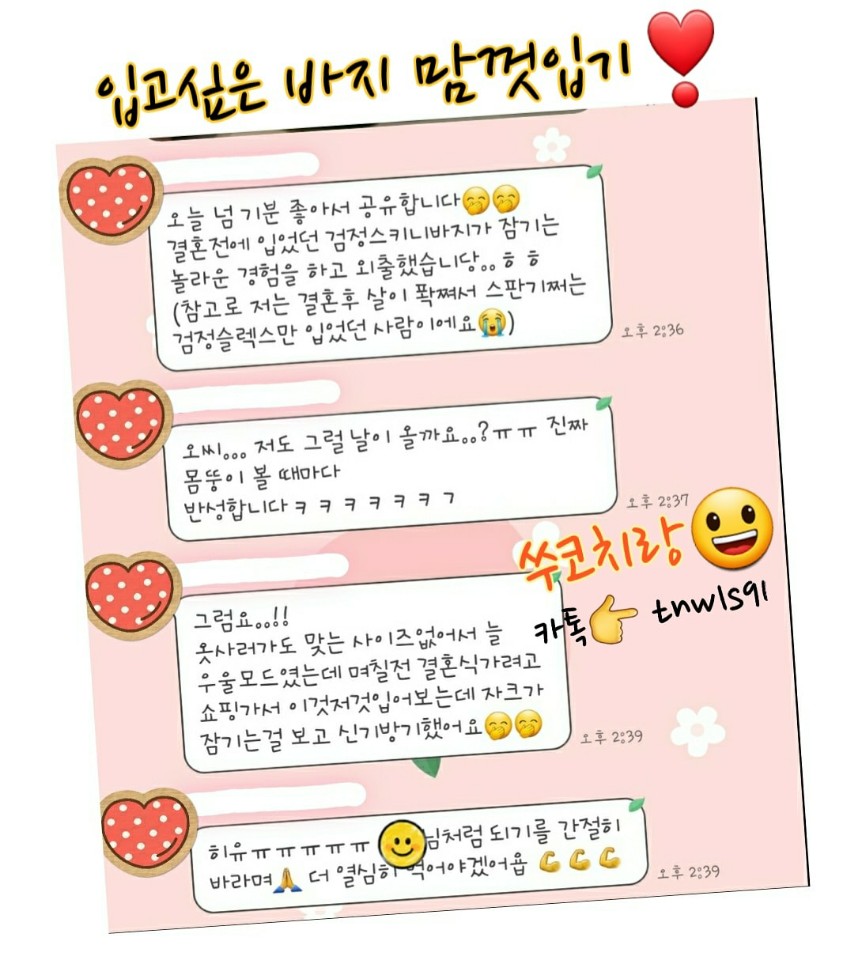 입고싶은 바지 맘껏입기
오늘 넘 기분 좋아서 공유합니다
결혼전에 입었던 검정스키니바지가 잠기는
놀라운 경험을 하고 외출했습니당.. ㅎ ㅎ
(참고로 저는 결혼후 살이 퐉쪄서 스판기쩌는
검정슬렉스만 입었던 사람이에요😭)
오후 2:36
오씨... 저도 그럴 날이 올까요..? ㅠ ㅠ 진짜
몸뚱이 볼 때마다
반성합니다 ㅋ ㅋ ㅋ ㅋ ㅋ ㅋ ㄱ
오후 2:37
쑤코치랑
카톡👉 tnwls91
그럼요..!!
옷사러가도 맞는 사이즈없어서 늘
우울모드였는데 며칠전 결혼식가려고
쇼핑가서 이것저것입어보는데 자크가
잠기는걸 보고 신기방기했어요
오후 2:39
히유 ㅠ ㅠ ㅠ ㅠ ㅠ 님처럼 되기를 간절히
바라며🙏 더 열심히 먹어야겠어욥 💪💪💪
오후 2:39